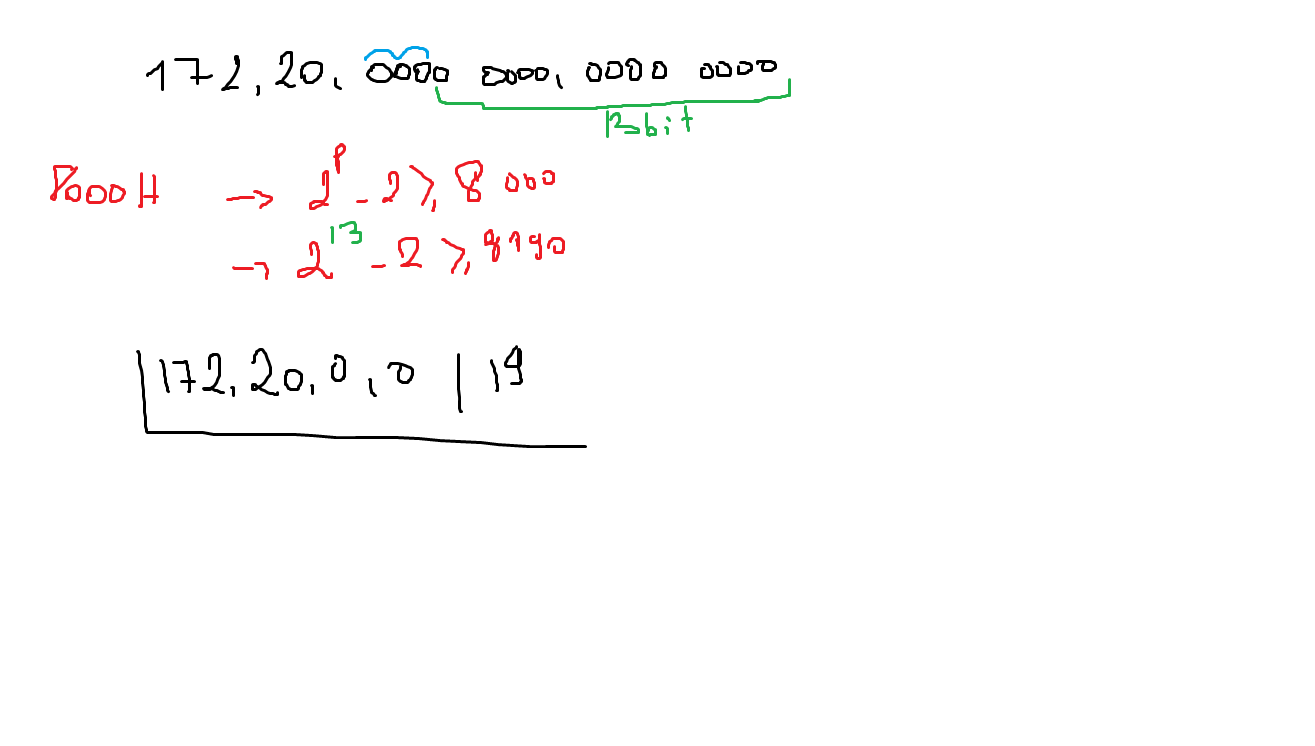 172.20.0000 0000.0000 0000
13bit
8000H → 2^p - 2 ≥ 8000
→ 2^13 - 2 ≥ 8190
172.20.0.0 | 19